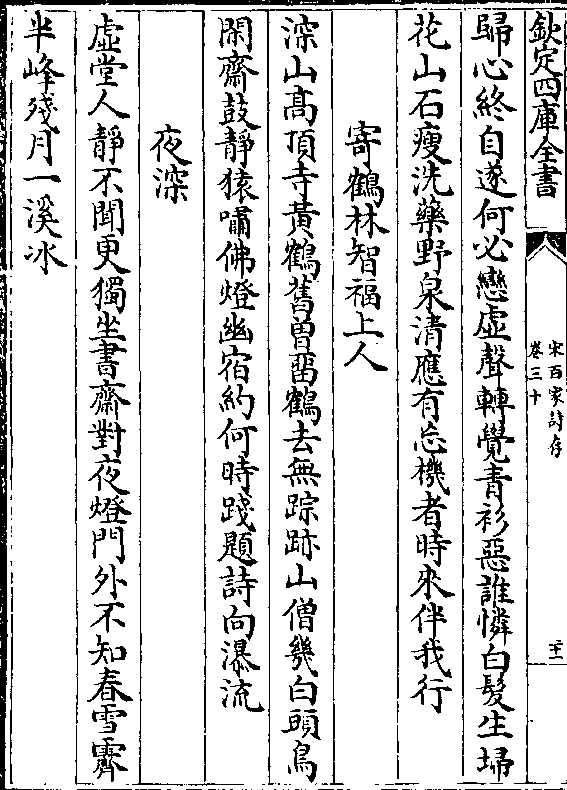 欽定四庫全書
宋百家詩存
卷三十
歸心終自遂何必戀虛聲轉覺青衫惡誰憐白髮生埽
花山石瘦洗藥野泉清應有忘機者時來伴我行
寄鶴林智福上人
深山髙頂寺黃鶴舊曽留鶴去無踪跡山僧幾白頭鳥
閑齋鼓靜猿嘯佛燈幽宿約何時踐題詩向瀑流
夜深
虛堂人靜不聞更獨坐書齋對夜燈門外不知春雪霽
半峰殘月一溪冰